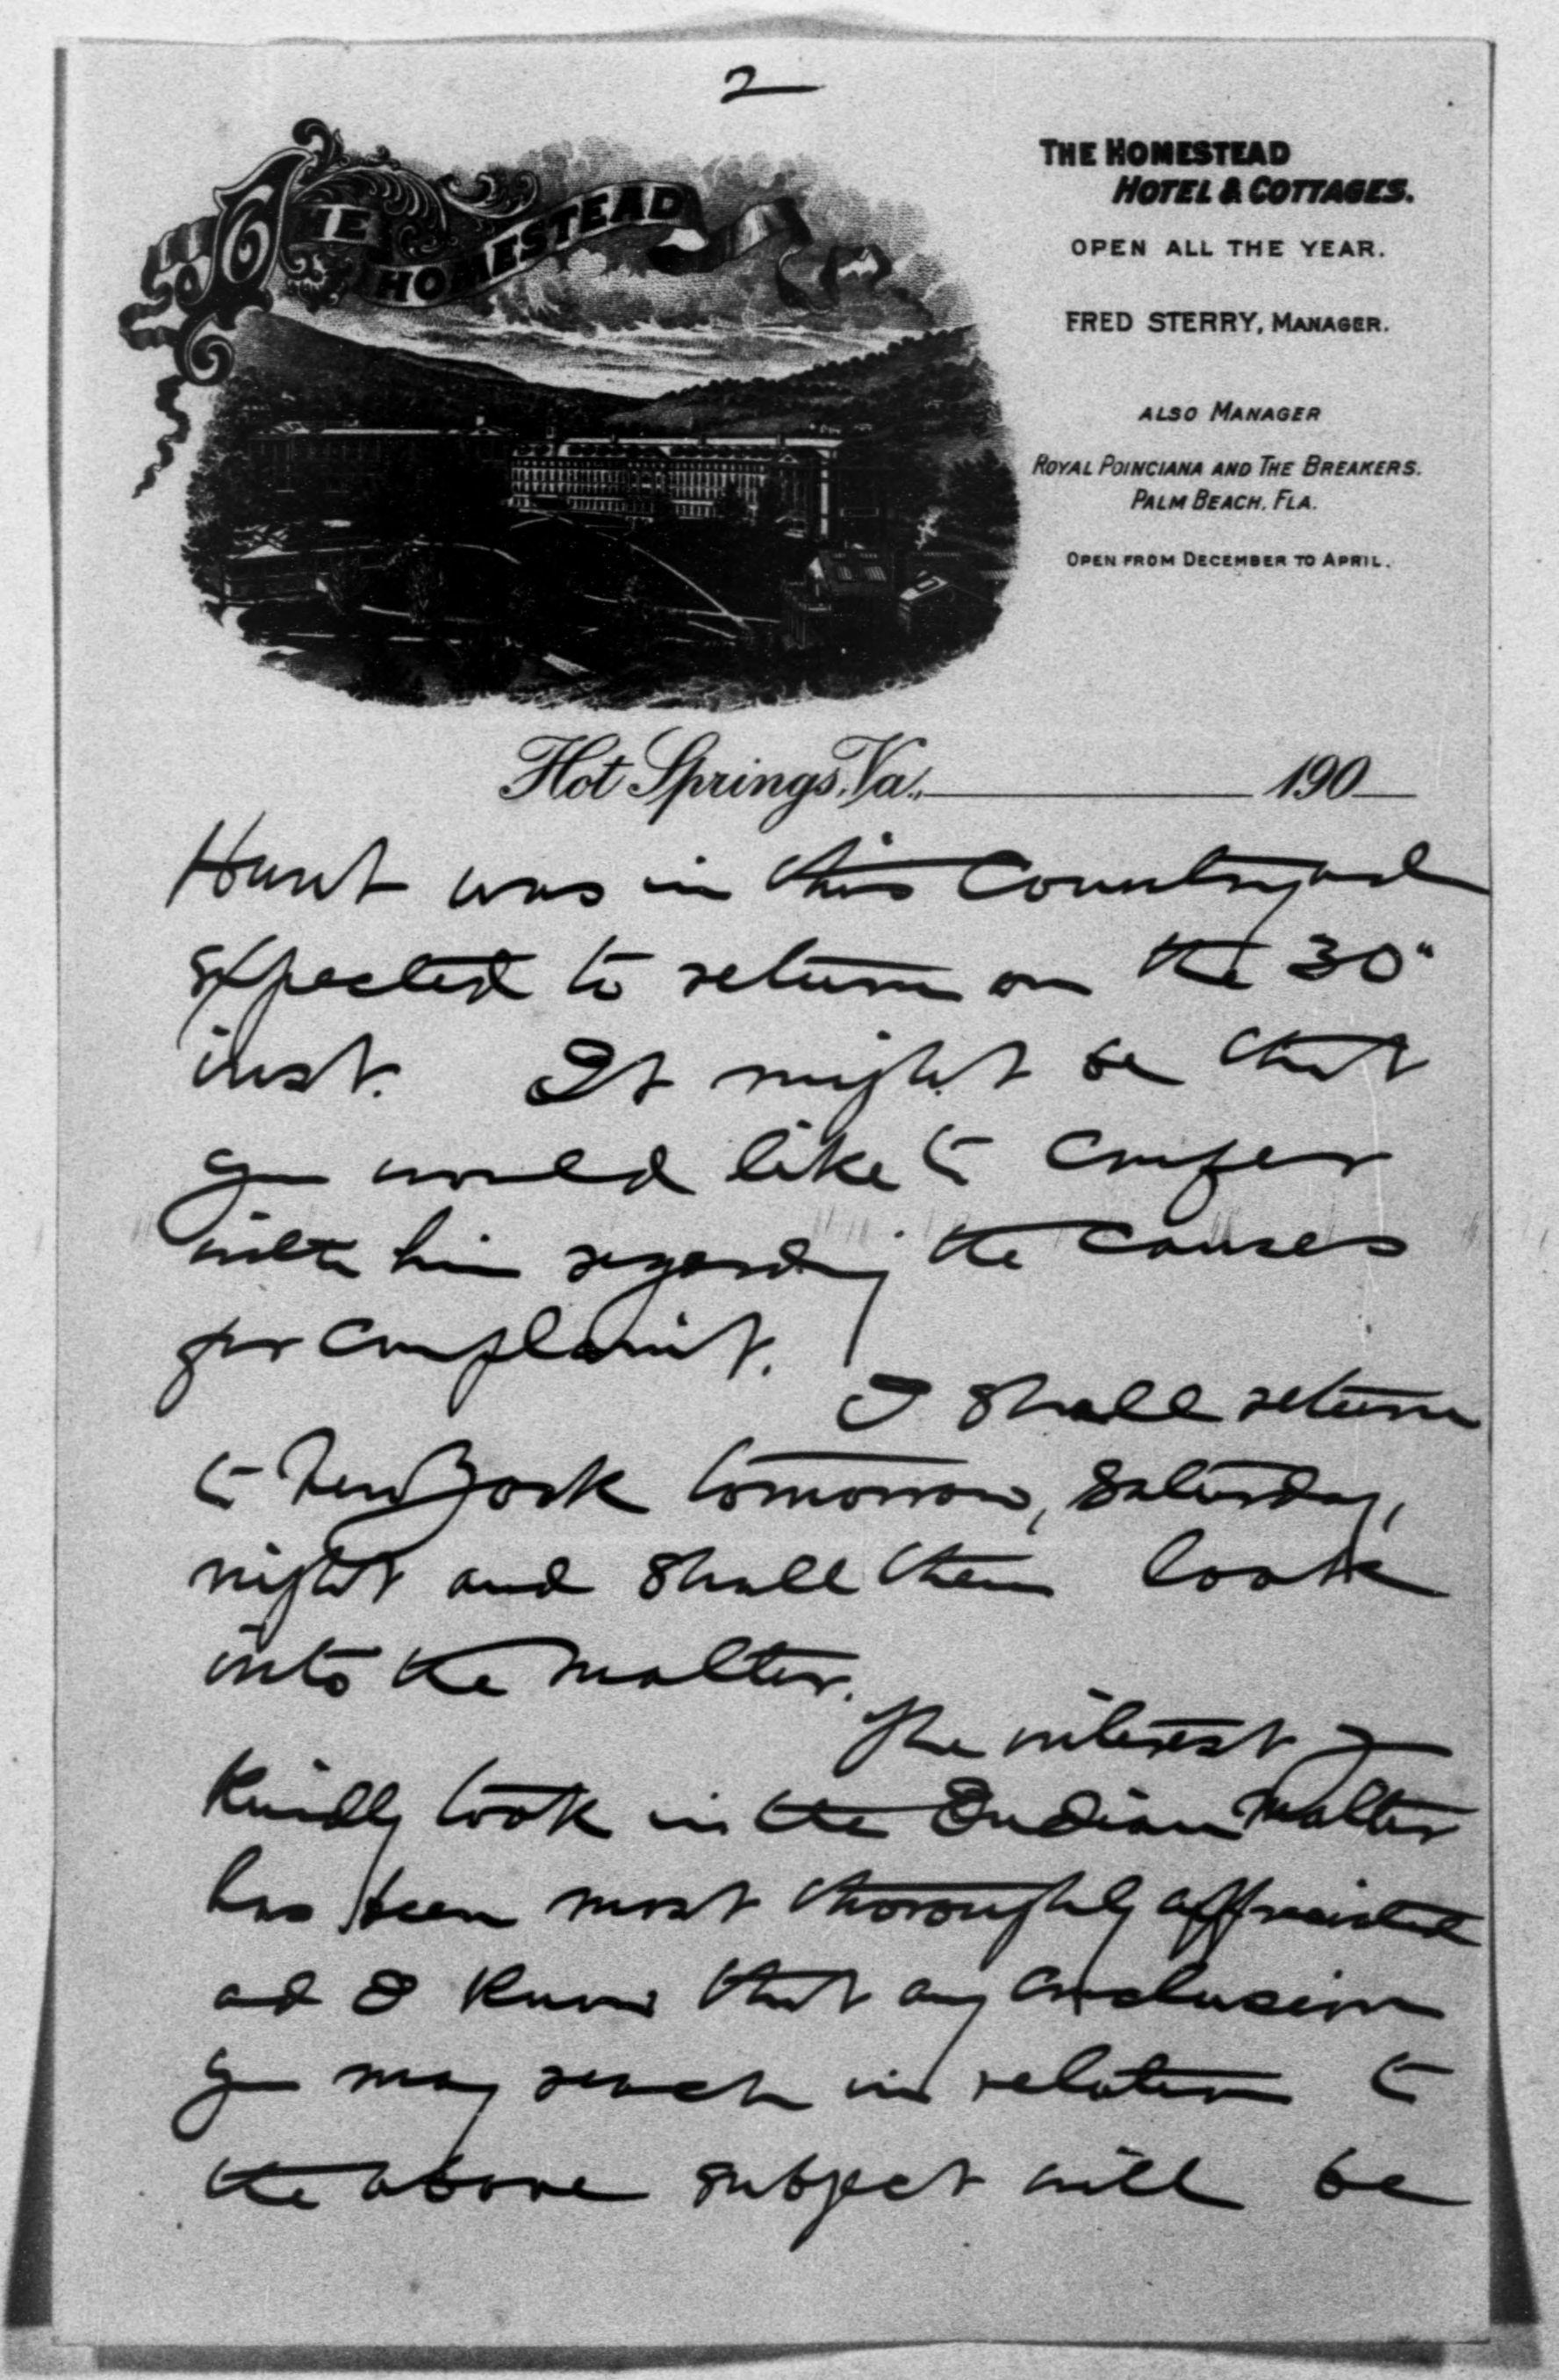 2
THE HOMESTEAD
THE HOMESTEAD
HOTEL & COTTAGES.
OPEN ALL THE YEAR.
FRED STERRY, MANAGER.
ALSO MANAGER
ROYAL POINCIANA AND THE BREAKERS.
PALM BEACH, FLA.
OPEN FROM DECEMBER TO APRIL.
Hot Springs, Va., 190
Hunt was in this Country and
expected to return on the 30"
inst. It might be that
you would like to confer
with him regarding the causes
for complaint.
I shall return
to New York tomorrow, Saturday,
night and shall then look
into the matter.
The interest you
kindly took in the Indian matter
has been most thoroughly appreciated
and I know that any conclusion
you may reach in relation to
the above subject will be